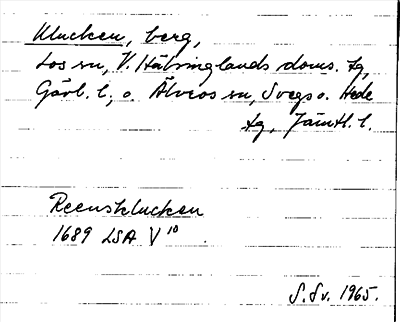 Klucken, berg,
Los sn, V. Hälsinglands doms. tg,
Gävl. l., o. Älvros sn, Svegs o. Hede
tg, Jämtl. l.
Reensklucken
1689 LSA V 10
S. Sv. 1965.